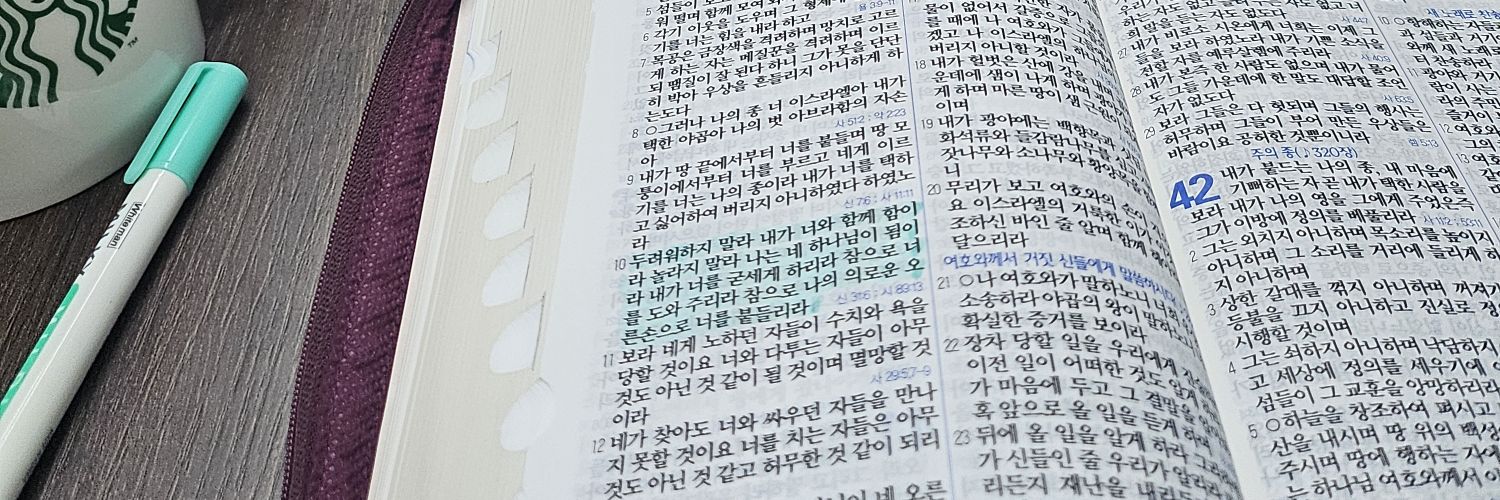 TM
Whiteman
5 섬들이 보고
워 떨며 함께 모여 와
6 각기 이웃을 도우며 그 형제에게
기를 너는 힘을 내라 하고 사 39-11
7 목공은 금장색을 격려하며 망치로 고르
게 하는 자는 메질꾼을 격려하며 이르
되 땜질이 잘 된다 하니 그가 못을 단단
히 박아 우상을 흔들리지 아니하게 하
는도다
8 ○그러나 나의 종 너 이스라엘아 내가
택한 야곱아 나의 벗 아브라함의 자손
아 사 51:2 ; 약 2:23
9 내가 땅 끝에서부터 너를 붙들며 땅 모
퉁이에서부터 너를 부르고 네게 이르
기를 너는 나의 종이라 내가 너를 택하
고 싫어하여 버리지 아니하였다 하였노
라 신 7:6 ; 사 11:11
10 두려워하지 말라 내가 너와 함께 함이
라 놀라지 말라 나는 네 하나님이 됨이
라 내가 너를 굳세게 하리라 참으로 너
를 도와 주리라 참으로 나의 의로운 오
른손으로 너를 붙들리라 신 31:6 ; 시 89:13
11 보라 네게 노하던 자들이 수치와 욕을
당할 것이요 너와 다투는 자들이 아무
것도 아닌 것 같이 될 것이며 멸망할 것
이라 사 29:5,7-9
12 네가 찾아도 너와 싸우던 자들을 만나
지 못할 것이요 너를 치는 자들은 아무
것도 아닌 것 같고 허무한 것 같이 되리
물이 없어서 갈증으로
를 때에 나 여호와가 그
겠고 나 이스라엘의 하나
버리지 아니할 것이라
18 내가 헐벗은 산에 강을 내며
운데에 샘이 나게 하며 광야
게 하며 마른 땅이 샘 근원이
이며
19 내가 광야에는 백향목과
화석류와 들감람나무
잣나무와 소나무와 황양
니
20 무리가 보고 여호와의 손이
요 이스라엘의 거룩한 이가 이
조하신 바인 줄 알며 함께
달으리라
여호와께서 거짓 신들에게 말씀하시다
21 ○나 여호와가 말하노니 너희
소송하라 야곱의 왕이 말하노
확실한 증거를 보이라
22 장차 당할 일을 우리에게
이전 일이 어떠한 것도 알게
가 마음에 두고 그 결말을
혹 앞으로 올 일을 듣게 하며
23 뒤에 올 일을 알게 하라 그리
가 신들인 줄 우리가 알리라
리든지 재난을 내리든지
자도 없도다
27 내가 비로소 시온에게 너희는 이제 그
들을 보라 하였노라 내가 기쁜 소식을
전할 자를 예루살렘에 주리라
28 내가 본즉 한 사람도 없으며 내가 물어
도 그들 가운데에 한 말도 대답할 조언
자가 없도다
29 보라 그들은 다 헛되며 그들의 행사는
허무하며 그들이 부어 만든 우상들은
바람이요 공허한 것뿐이니라
주의 종(♪320장)
42 내가 붙드는 나의 종, 내 마음에
기뻐하는 자 곧 내가 택한 사람을
보라 내가 나의 영을 그에게 주었은즉
그가 이방에 정의를 베풀리라
2 그는 외치지 아니하며 목소리를 높이지
아니하며 그 소리를 거리에 들리게 하
지 아니하며
3 상한 갈대를 꺾지 아니하며 꺼져가
등불을 끄지 아니하고 진실로 정
시행할 것이며
4 그는 쇠하지 아니하며 낙담하지
고 세상에 정의를 세우기에
섬들이 그 교훈을 앙망하리라
5 ○하늘을 창조하여 펴시고
산을 내시며 땅 위의 백성
주시며 땅에 행하는 자에
는 하나님 여호와께서 이
새 노래로 찬송
10 항해하는 자들
과 섬들과 거기
와께 새 노래로
터 찬송하라
11 광야와
12 여호와
13 여호